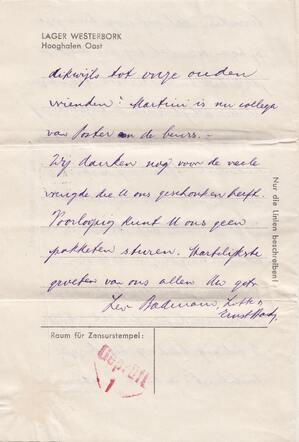 LAGER WESTERBORK
Hooghalen Oost
dikwijls tot onze ouden
vrienden! Martin is nu collega
van Poster en de beurs. -
Wij danken nog voor de vele
vreugde die U ons geschonken heeft.
Voorloopig kunt U ons geen
paketten sturen. Hartelijkste
groeten van ons allen
Nur die Linien beschreiben!
Raum für Zensurstempel:
Geprüft
1